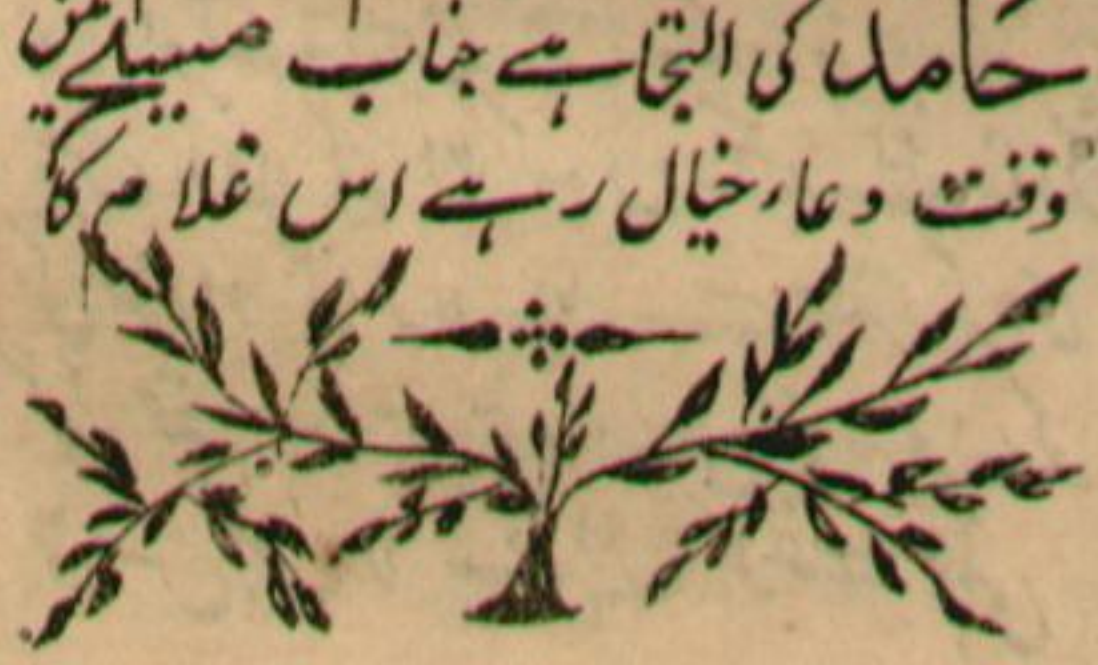 حامد کی التجا ہے جناب مسیح میں
وقت دعاء خیال رہے اس غلام کا